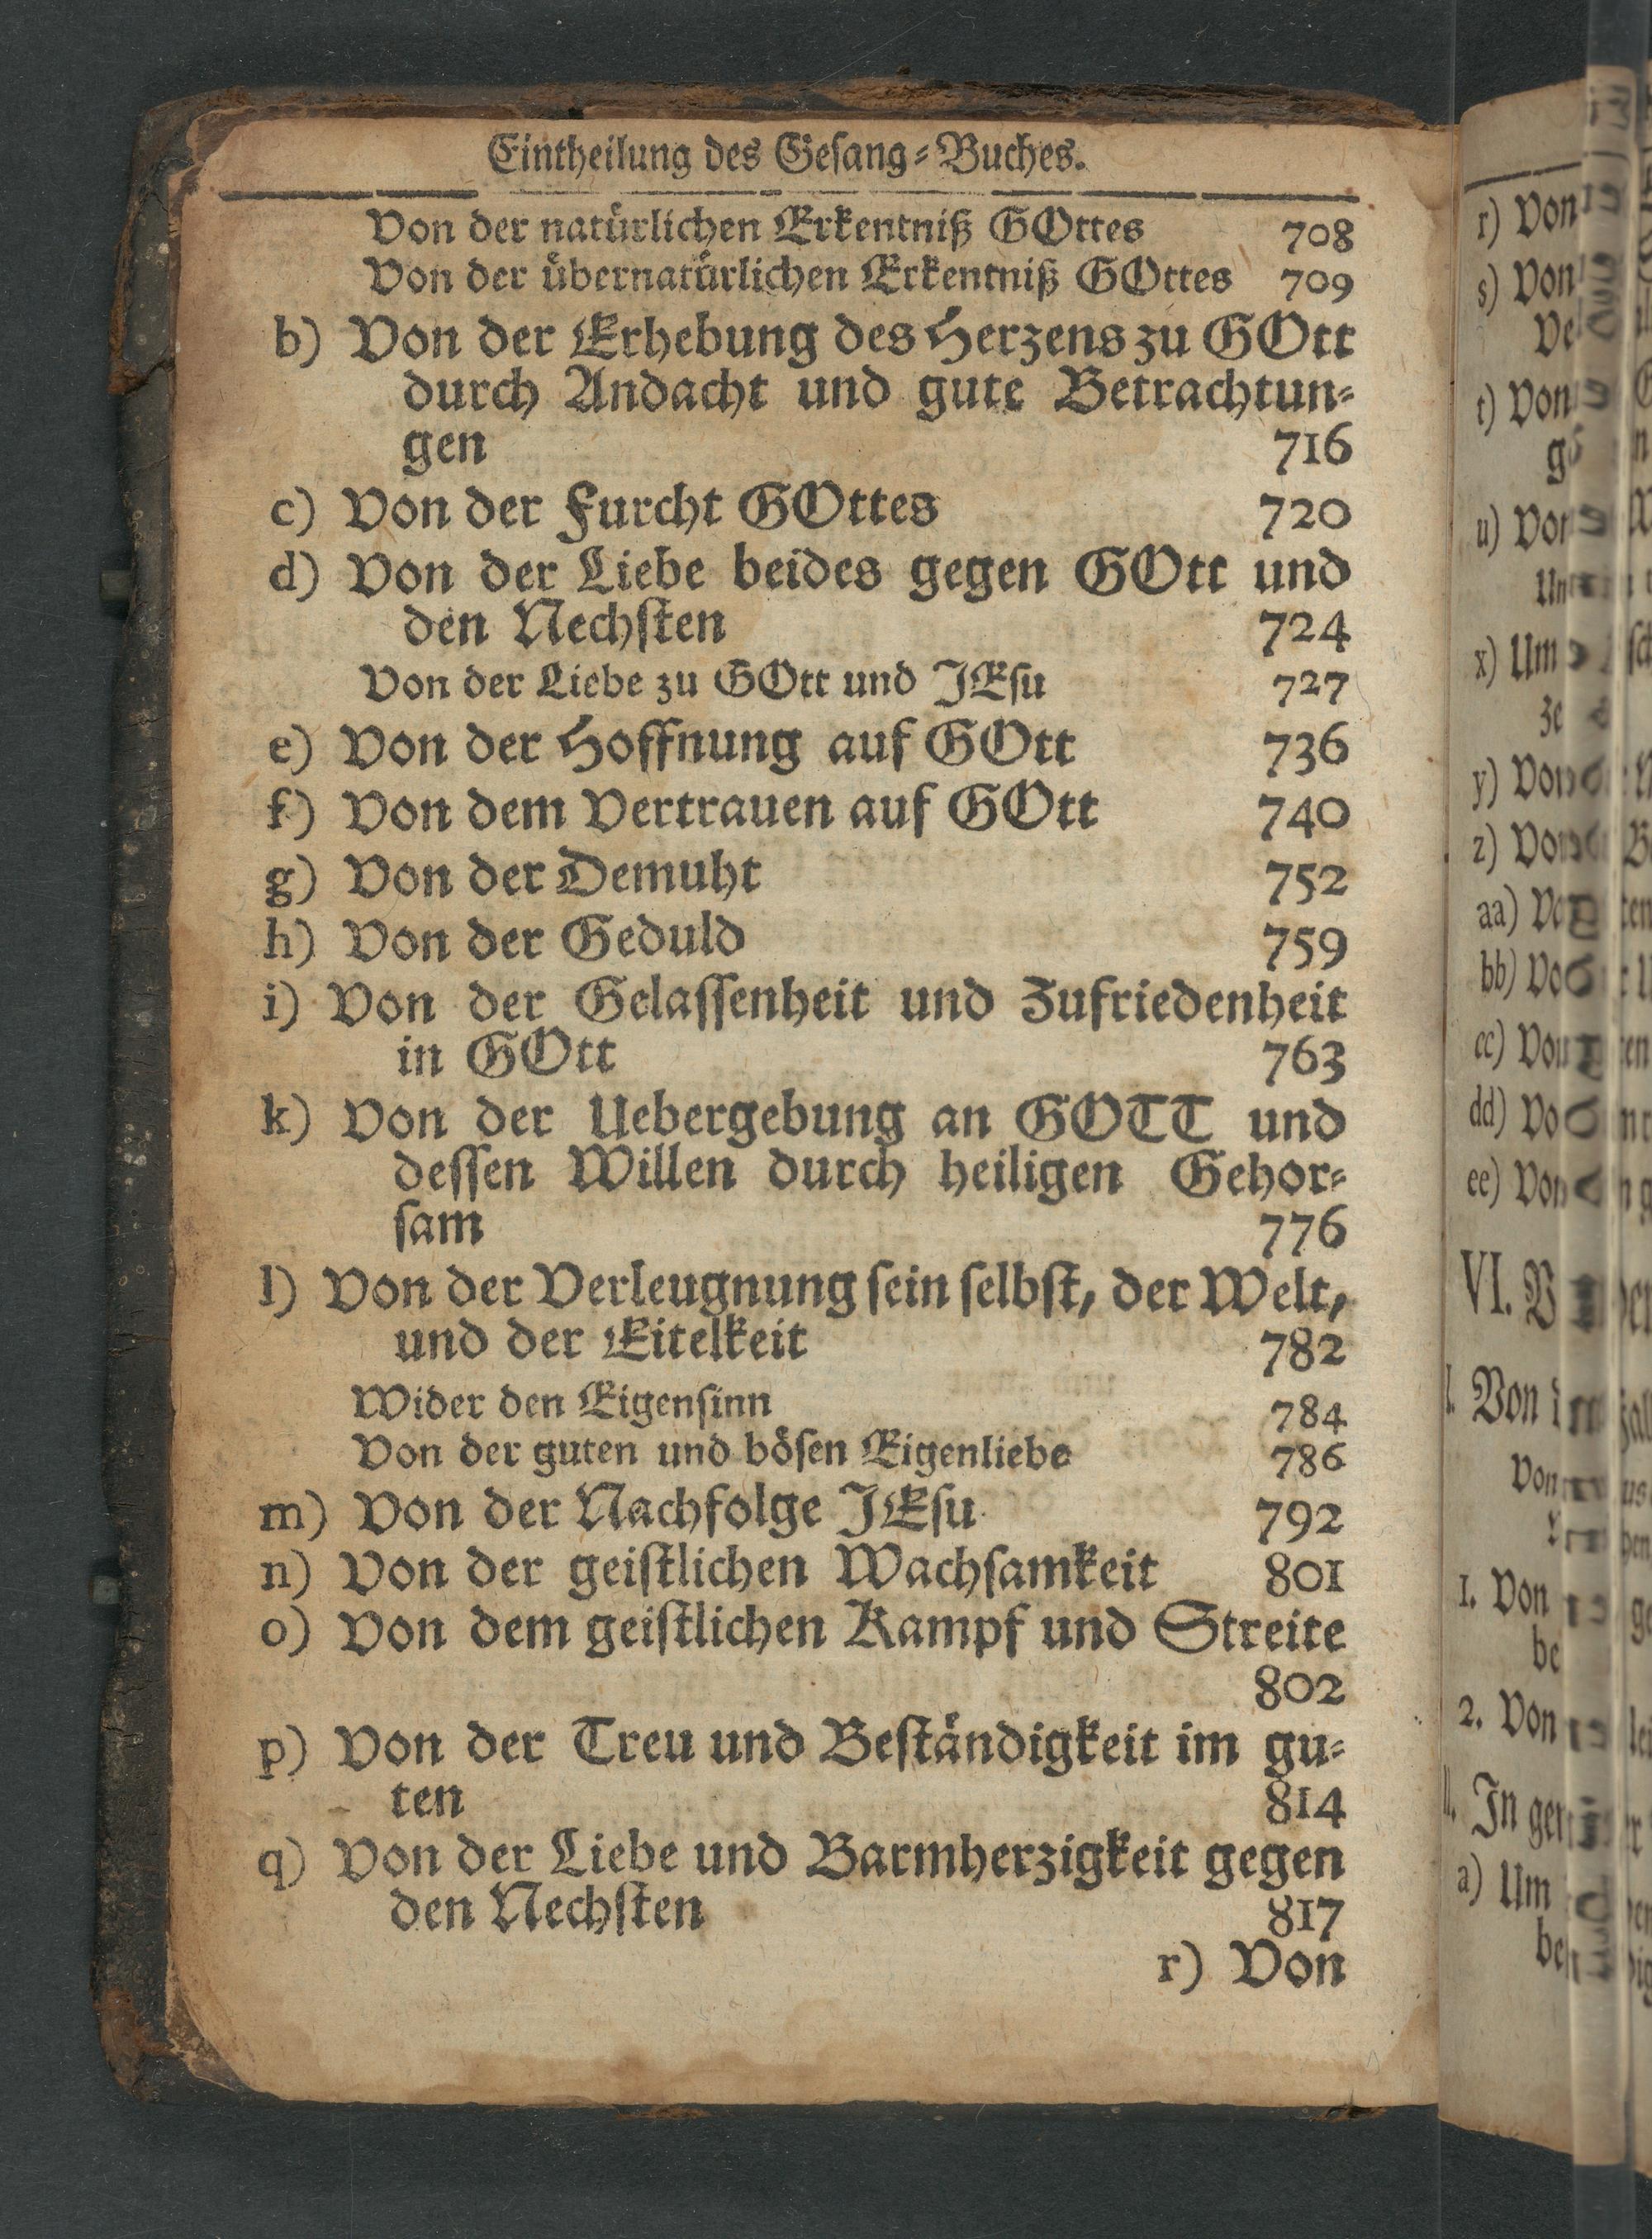 Eintheilung des Geſang⸗Buches.
Von der natürlichen Erkentniß GOttes 708
Von der übernatürlichen Erkentniß GOttes 709
b) Von der Erhebung des Herzens zu GOtt
durch Andacht und gute Betrachtun⸗
gen 716
c) Von der Furcht GOttes 720
d) Von der Liebe beides gegen GOtt und
den Nechſten 724
Von der Liebe zu GOtt und JEſu 727
e) Von der Hoffnung auf GOtt 736
f) Von dem Vertrauen auf GOtt 740
g) Von der Demuht 752
h) Von der Geduld 759
i) Von der Gelaſſenheit und Zufriedenheit
in GOtt 763
k) Von der Uebergebung an GOTT und
deſſen Willen durch heiligen Gehor⸗
ſam 776
l) Von der Verleugnung ſein ſelbſt, der Welt,
und der Eitelkeit 782
Wider den Eigenſinn 784
Von der guten und böſen Eigenliebe 786
m) Von der Nachfolge JEſu 792
n) Von der geiſtlichen Wachſamkeit 801
o) Von dem geiſtlichen Kampf und Streite
802
p) Von der Treu und Beſtändigkeit im gu⸗
ten 814
q) Von der Liebe und Barmherzigkeit gegen
den Nechſten 817
r) Von
r) Von
s) Von
t) Von
u) Von
x) Um
y) Von
z) Von
aa)
bb)
cc) Von
dd)
ee) Von
VI.
Von
Von
1. Von
2. Von
In
a) Um